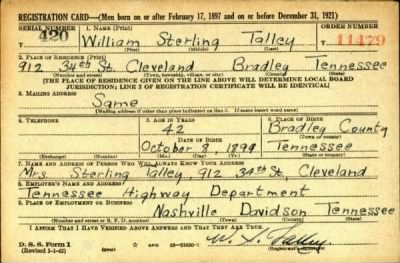 REGISTRATION CARD—(Men born on or after February 17, 1897 and on or before December 31, 1921)
SERIAL NUMBER 1. NAME (Print) ORDER NUMBER
420 William Sterling Talley 11479
(First) (Middle) (Last)
2. PLACE OF RESIDENCE (Print)
912 34th St. Cleveland Bradley Tennessee
(Number and street) (Town, township, village, or city) (County) (State)
[THE PLACE OF RESIDENCE GIVEN ON THE LINE ABOVE WILL DETERMINE LOCAL BOARD
JURISDICTION; LINE 2 OF REGISTRATION CERTIFICATE WILL BE IDENTICAL]
3. MAILING ADDRESS
Same
[Mailing address if other than place indicated on line 2. If same insert word same]
4. TELEPHONE 5. AGE IN YEARS 6. PLACE OF BIRTH
42 Bradley County
DATE OF BIRTH (Town or county)
October 8, 1899 Tennessee
(Mo.) (Day) (Yr.) (State or country)
7. NAME AND ADDRESS OF PERSON WHO WILL ALWAYS KNOW YOUR ADDRESS
Mrs. Sterling Talley, 912 34th St., Cleveland
8. EMPLOYER'S NAME AND ADDRESS
Tennessee Highway Department
9. PLACE OF EMPLOYMENT OR BUSINESS
Nashville Davidson Tennessee
(Number and street or R. F. D. number) (Town) (County) (State)
I AFFIRM THAT I HAVE VERIFIED ABOVE ANSWERS AND THAT THEY ARE TRUE.
D. S. S. Form 1 GPO W. S. Talley
(Revised 1-1-42) (Registrant's signature)